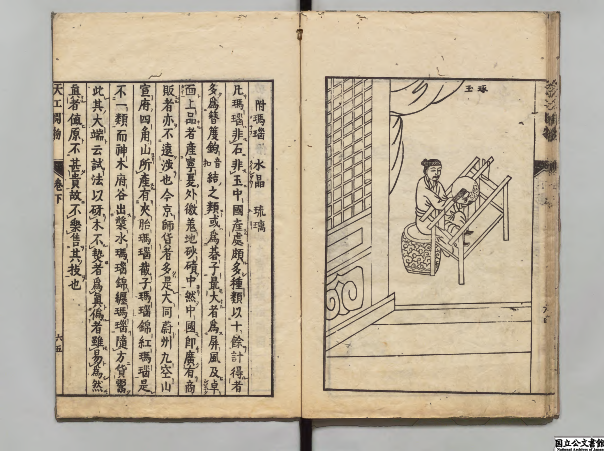 琢玉
附瑪瑙 水晶 琉璃
凡瑪瑙非石非玉中國產處頗多種類以十餘計得者
多爲簪篋鉤音扣結之類或爲碁子最大者爲屏風及卓
面上品者產寧夏外徼羌地砂磧中然中國卽廣有商
販者亦不遠涉也今京師貨者多是大同蔚州九空山
宣府四角山所產有夾胎瑪瑙截子瑪瑙錦紅瑪瑙是
不一類而神木府谷出漿水瑪瑙錦纏瑪瑙隨方貨鬻
此其大端云試法以砑木不熱者爲眞僞者雖易爲然
眞者值原不甚貴故不樂售其技也
天工開物 卷下 六五
国立公文書館
National Archives of Japan